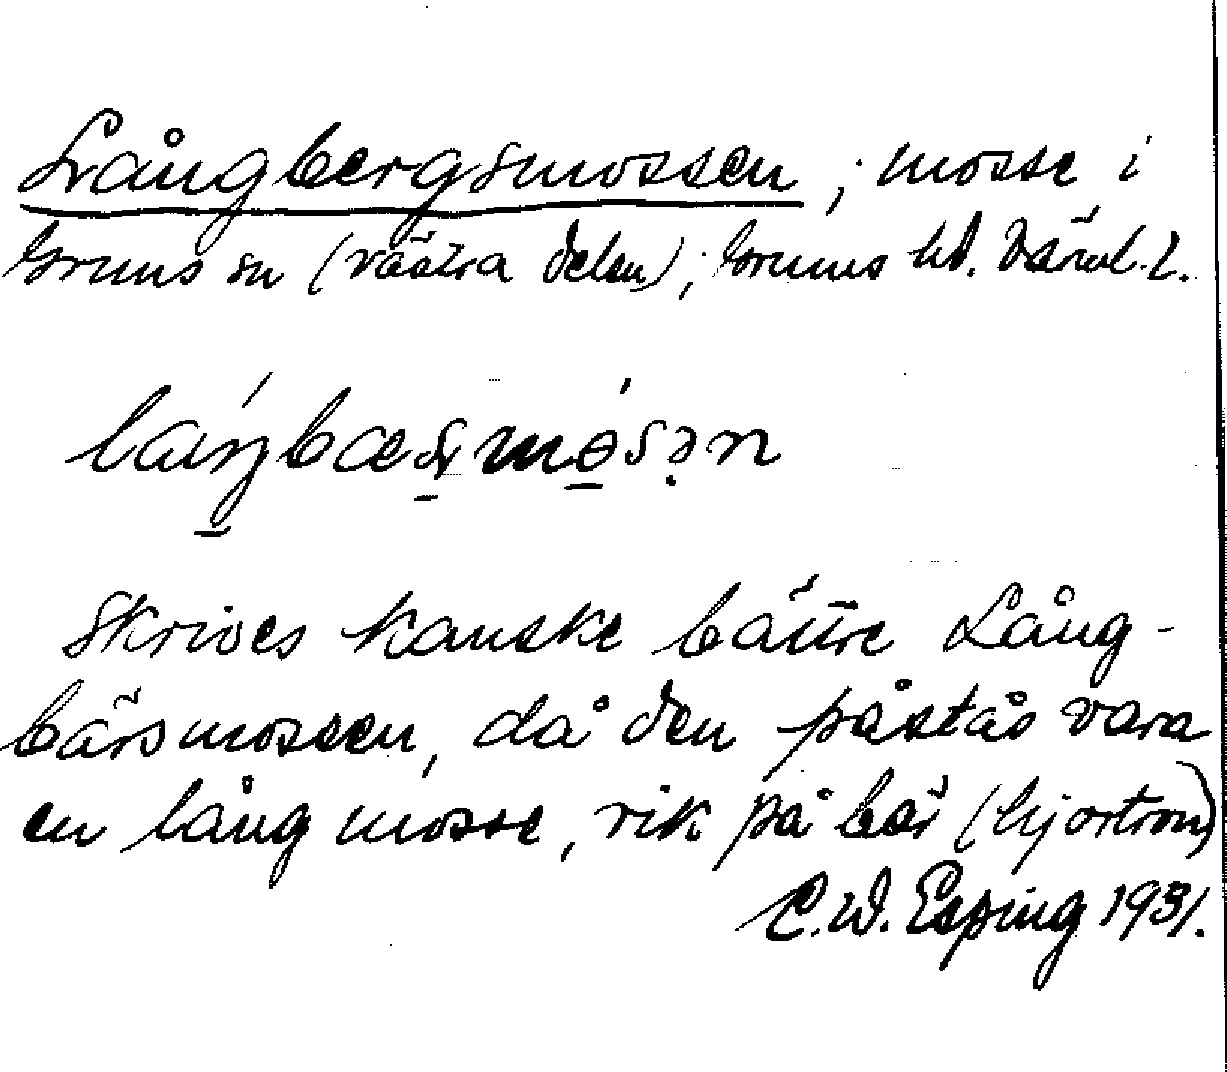 Långbergsmossen; mosse i
Grums sn (västra delen); Grums hd. Värml. l.
Skrives kanske bättre Lång-
bärsmossen, då den påstås vara
en lång mosse, rik på bär (hjortron)
C.W. Esping 1931.